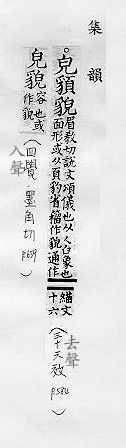 集韻
皃䫉貌眉教切說文頌儀也从人白象
面形或从頁豹省籀作貌通作
緢文
十六
(三十六效 p584)
去聲
皃貌容也或
作貌
(四覺 墨角切 p659)
入聲